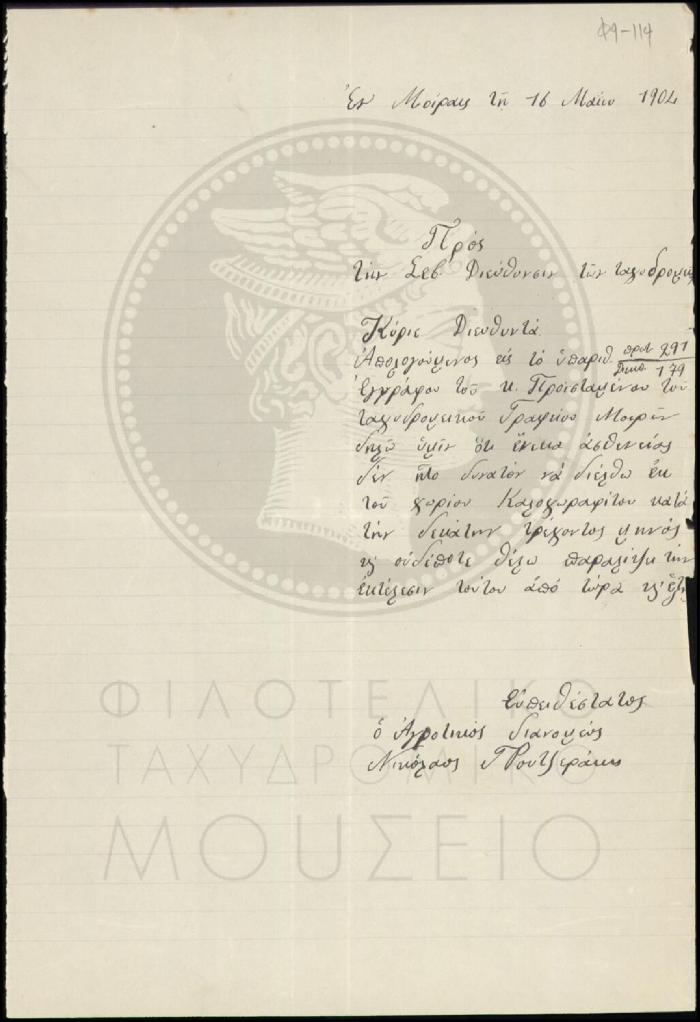 Φ9-114
Ἐν Μοίραις τῇ 16 Μαΐου 1904
Πρὸς
τὴν Σεβ. Διεύθυνσιν τῶν ταχυδρομικ
Κύριε Διευθυντά
Ἀπολογούμενος εἰς τὸ ὑπαριθ. πρωτ 291
διεκπ 179
ἐγγράφου τοῦ κ. Προϊσταμένου τοῦ
ταχυδρομικοῦ Γραφείου Μοιρῶν
δηλῶ ὑμῖν ὅτι ἕνεκα ἀσθενείας
δὲν ἦτο δυνατὸν νὰ διέλθω ἐκ
τοῦ χωρίου Καλοχωραφίτου κατὰ
τὴν δεκάτην τρέχοντος μηνὸς
κ' οὐδέποτε θέλω παραλίψει τὴν
ἐκτέλεσιν τούτου ἀπὸ τώρα κ' ἑξῆς
Εὐπειθέστατος
ὁ Ἀγροτικὸς διανομεὺς
Νικόλαος
ΦΙΛΟΤΕΛΙΚΟ
ΤΑΧΥΔΡΟΜΙΚΟ
ΜΟΥΣΕΙΟ